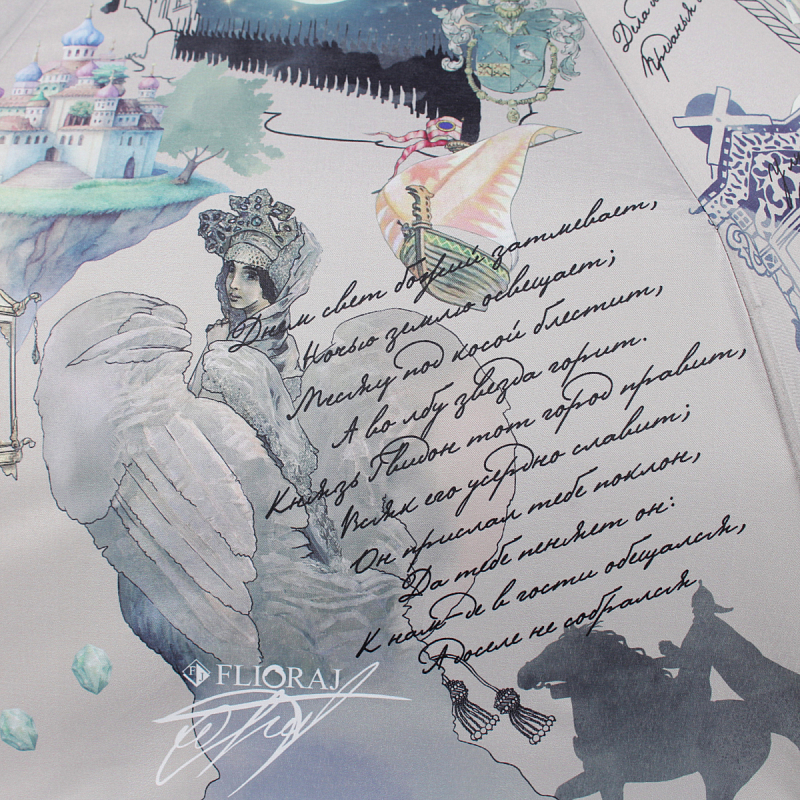 Дела
Преданья
Днем свет божий затмевает,
Ночью землю освещает;
Месяц под косой блестит,
А во лбу звезда горит.
Князь Гвидон тот город правит,
Всяк его усердно славит;
Он прислал тебе поклон,
Да тебе пеняет он:
К нам-де в гости обещался,
А доселе не собрался
FJ FLIORAJ